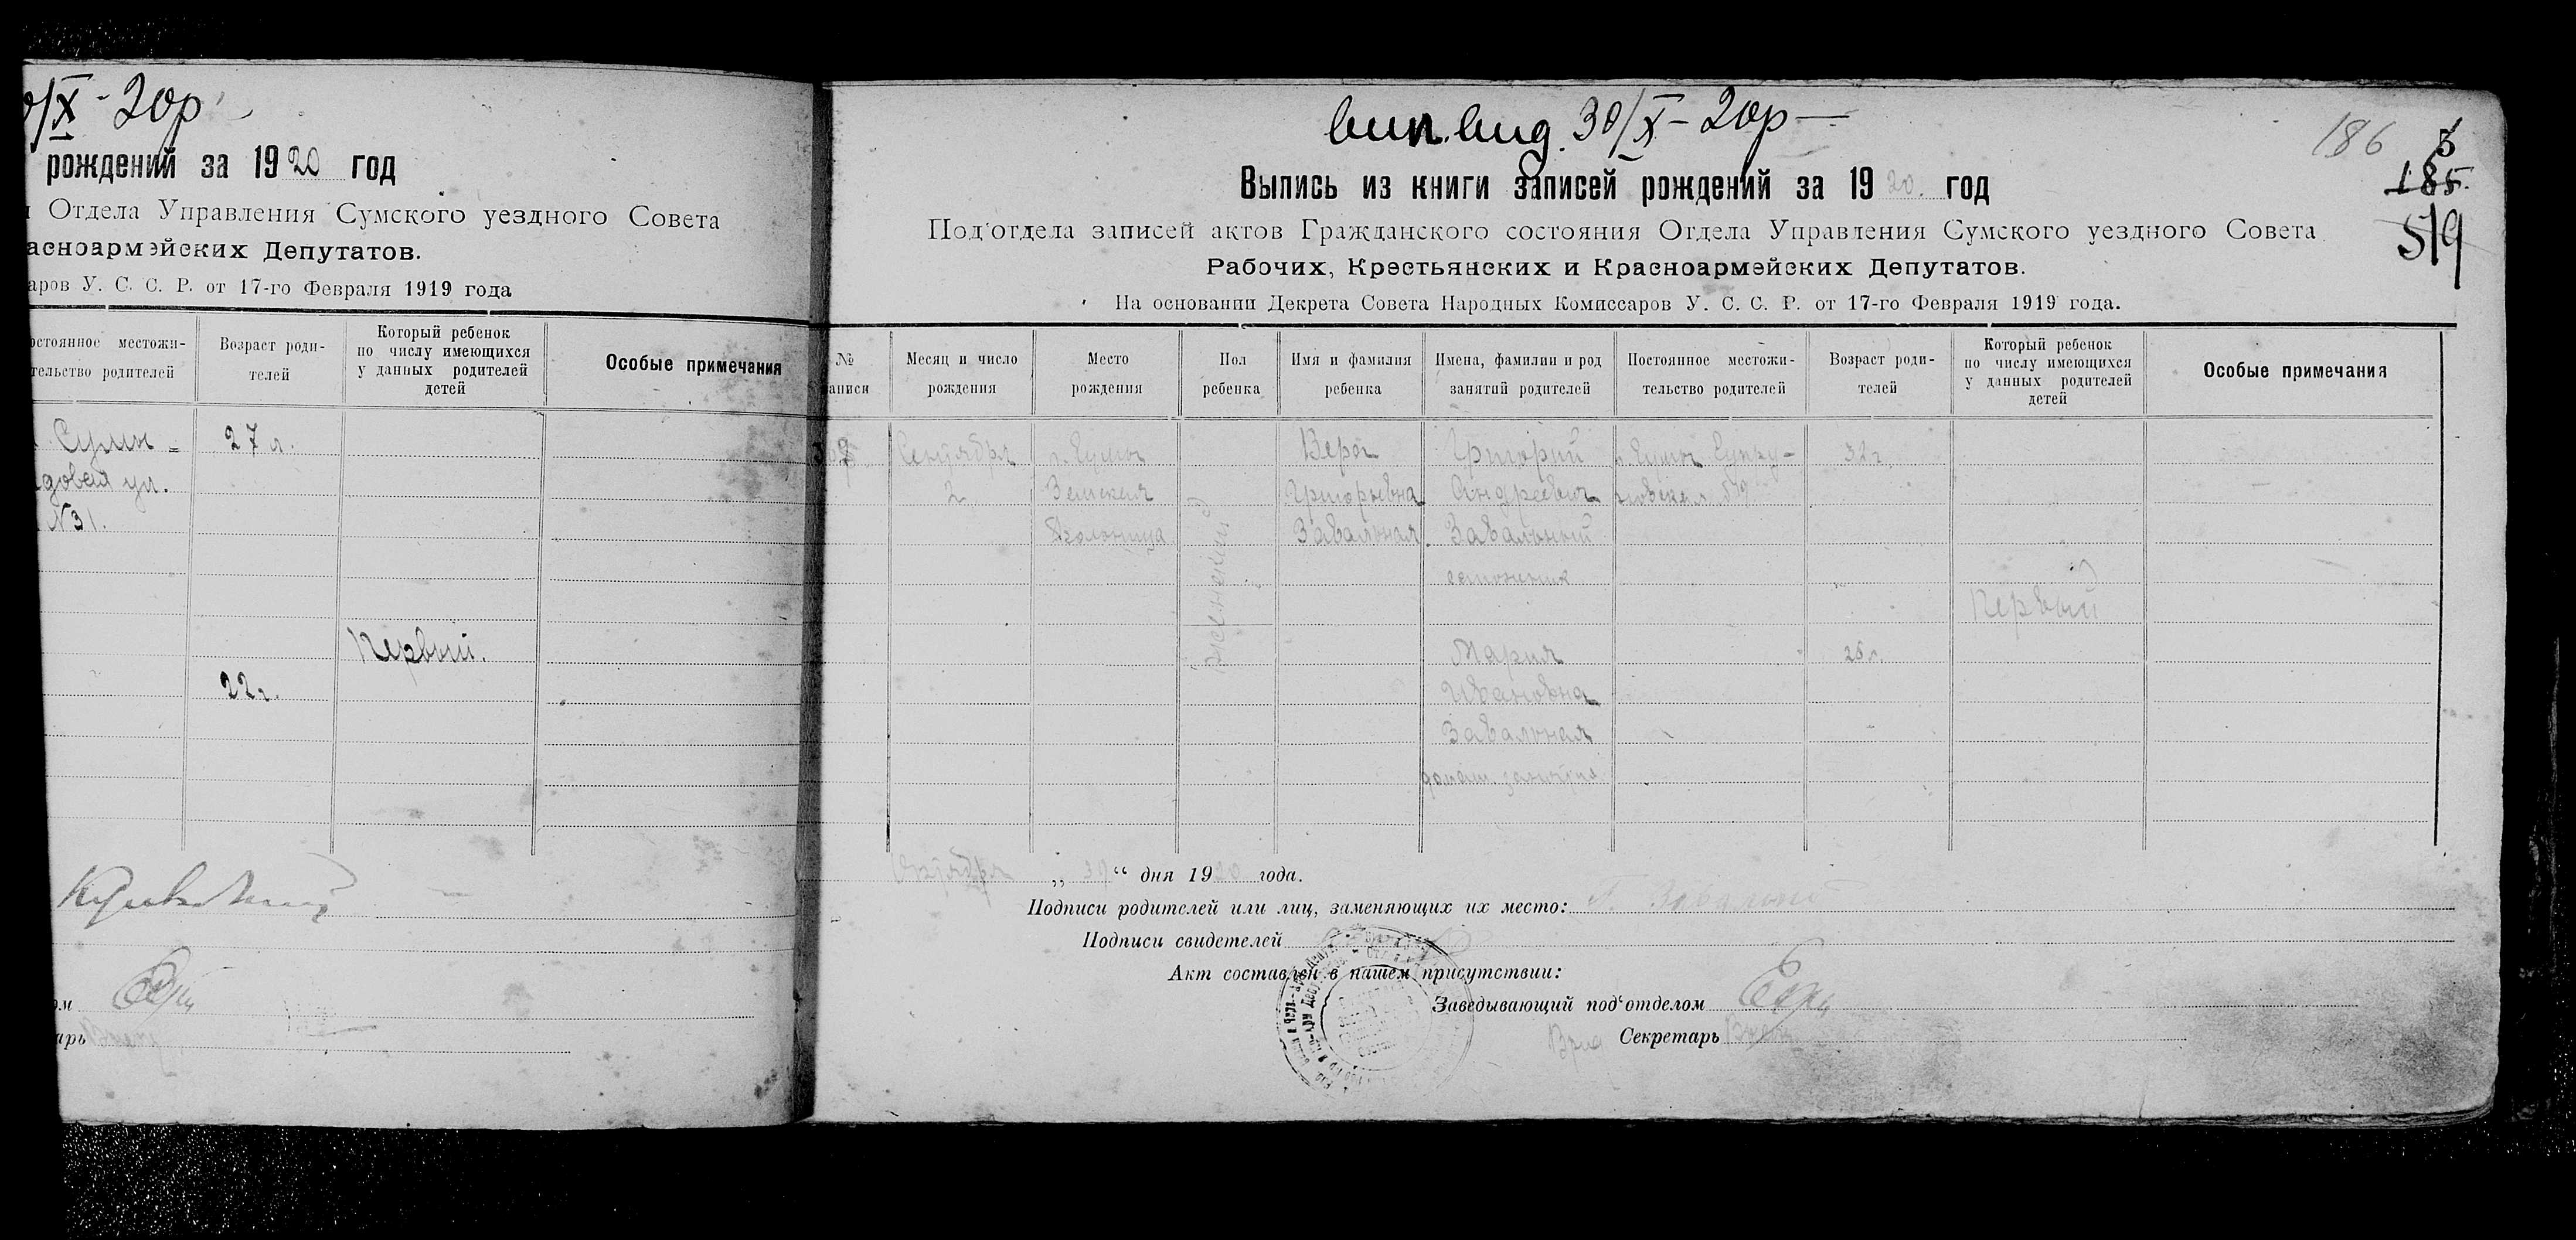 /X - 20р
рождений за 1920 год
Отдела Управления Сумского уездного Совета
асноармейских Депутатов.
аров У. С. С. Р. от 17-го Февраля 1919 года
остоянное местожи-
тельство родителей
Возраст роди-
телей
Который ребенок
по числу имеющихся
у данных родителей
детей
Особые примечания
Сумы
27 л.
довая ул.
№31.
Первый.
22 г.
ом
арь
вип. вид. 30/X - 20р
186
185.
519
Выпись из книги записей рождений за 1920. год
Под'отдела записей актов Гражданского состояния Отдела Управления Сумского уездного Совета
Рабочих, Крестьянских и Красноармейских Депутатов.
На основании Декрета Совета Народных Комиссаров У. С. С. Р. от 17-го Февраля 1919 года.
№
аписи
Месяц и число
рождения
Место
рождения
Пол
ребенка
Имя и фамилия
ребенка
Имена, фамилии и род
занятий родителей
Постоянное местожи-
тельство родителей
Возраст роди-
телей
Который ребенок
по числу имеющихся
у данных родителей
детей
Особые примечания
Сентября
2
г. Сумы
Земская
женский
Вера
Григорьевна
Завальная.
Григорий
Андреевич
Завальный
Мария
Ивановна
Завальная
домаш. занятия
г. Сумы
32 г.
26 л.
Первый
Октября „ 30 “ дня 1920 года.
Подписи родителей или лиц, заменяющих их место: Завальный
Подписи свидетелей
Акт составлен в нашем присутствии:
Заведывающий под'отделом
Врид Секретарь